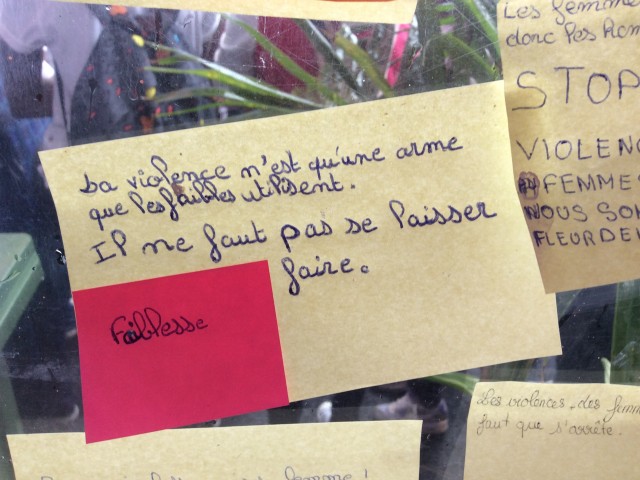 La violence n'est qu'une arme
que les faibles utilisent.
Il ne faut pas se laisser
faire.
Faiblesse
Les femme
donc les hom
STOP
VIOLENC
FEMMES
NOUS SON
FLEUR DE
Les violences des femm
faut que s'arrête.
femme !